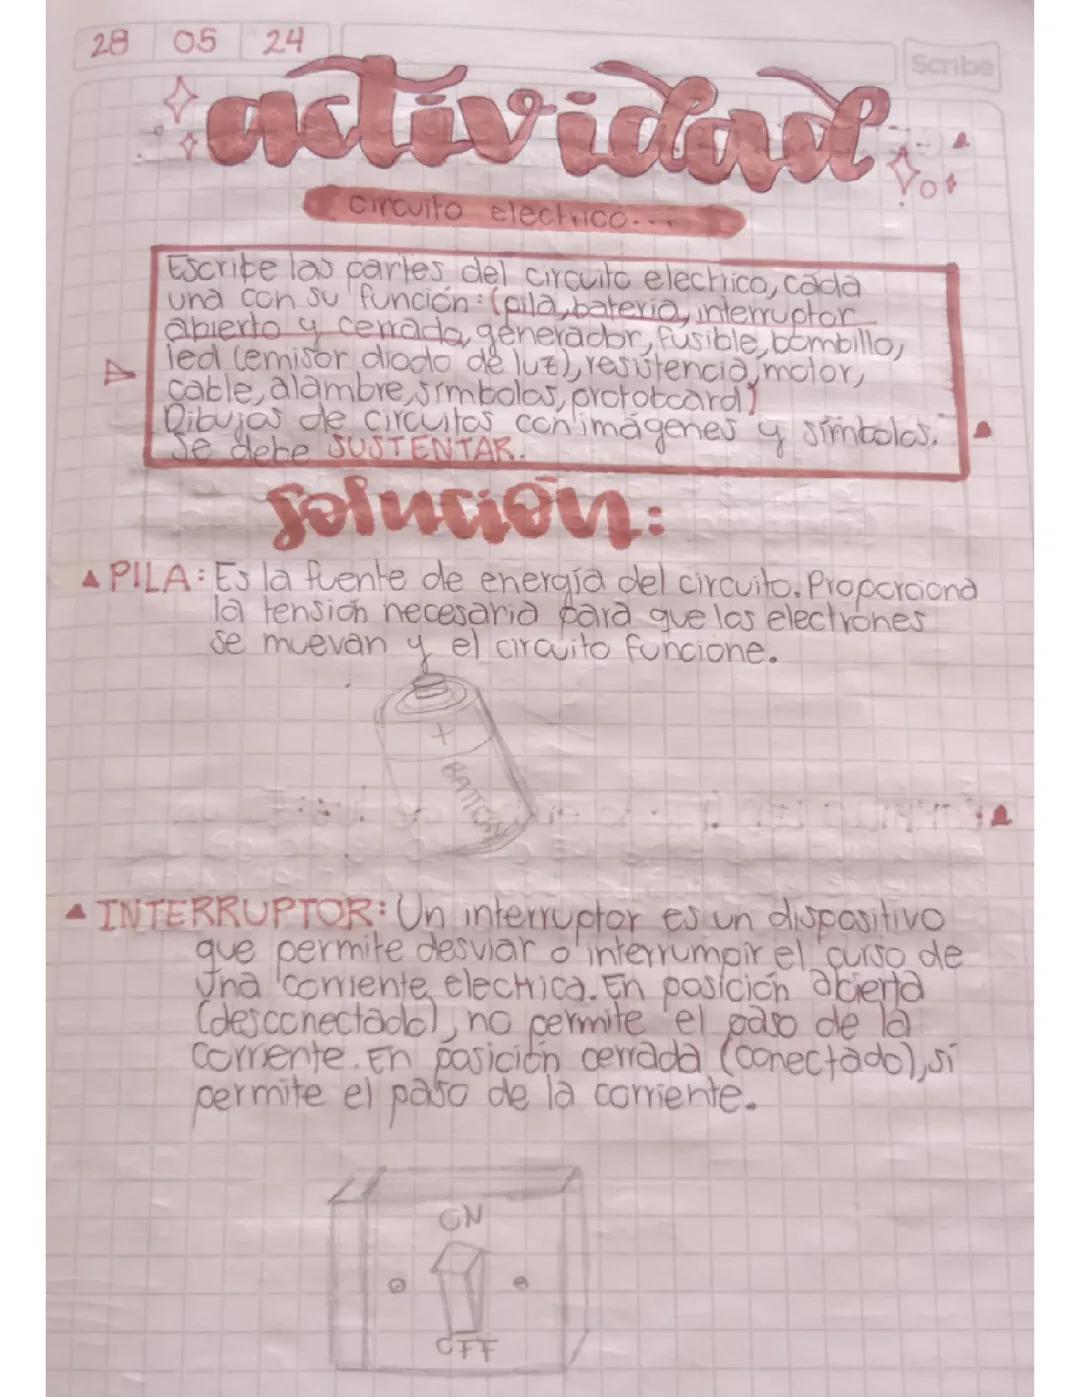 28 05 24
Scribe
actividad
circuito electrico...
Escribe las partes del circuito electrico, cada
una con su función: (pila, bateria, interruptor
abierto y cerrada, generador, fusible, bombillo,
led (emisor diodo de luz), resistencia, motor,
cable, alambre, símbolos, protoboard)
Dibujos de circuitos con imágenes y símbolos.
Se debe SUSTENTAR.
solución:
PILA: Es la fuente de energía del circuito. Proporciona
la tensión necesaria para que los electrones
se muevan y el circuito funcione.
+
INTERRUPTOR: Un interruptor es un dispositivo
que permite desviar o interrumpir el curso de
una corriente electrica. En posición abierta
(desconectado), no permite el paso de la
corriente. En posición cerrada (conectado), sí
permite el paso de la corriente.
ON
OFF